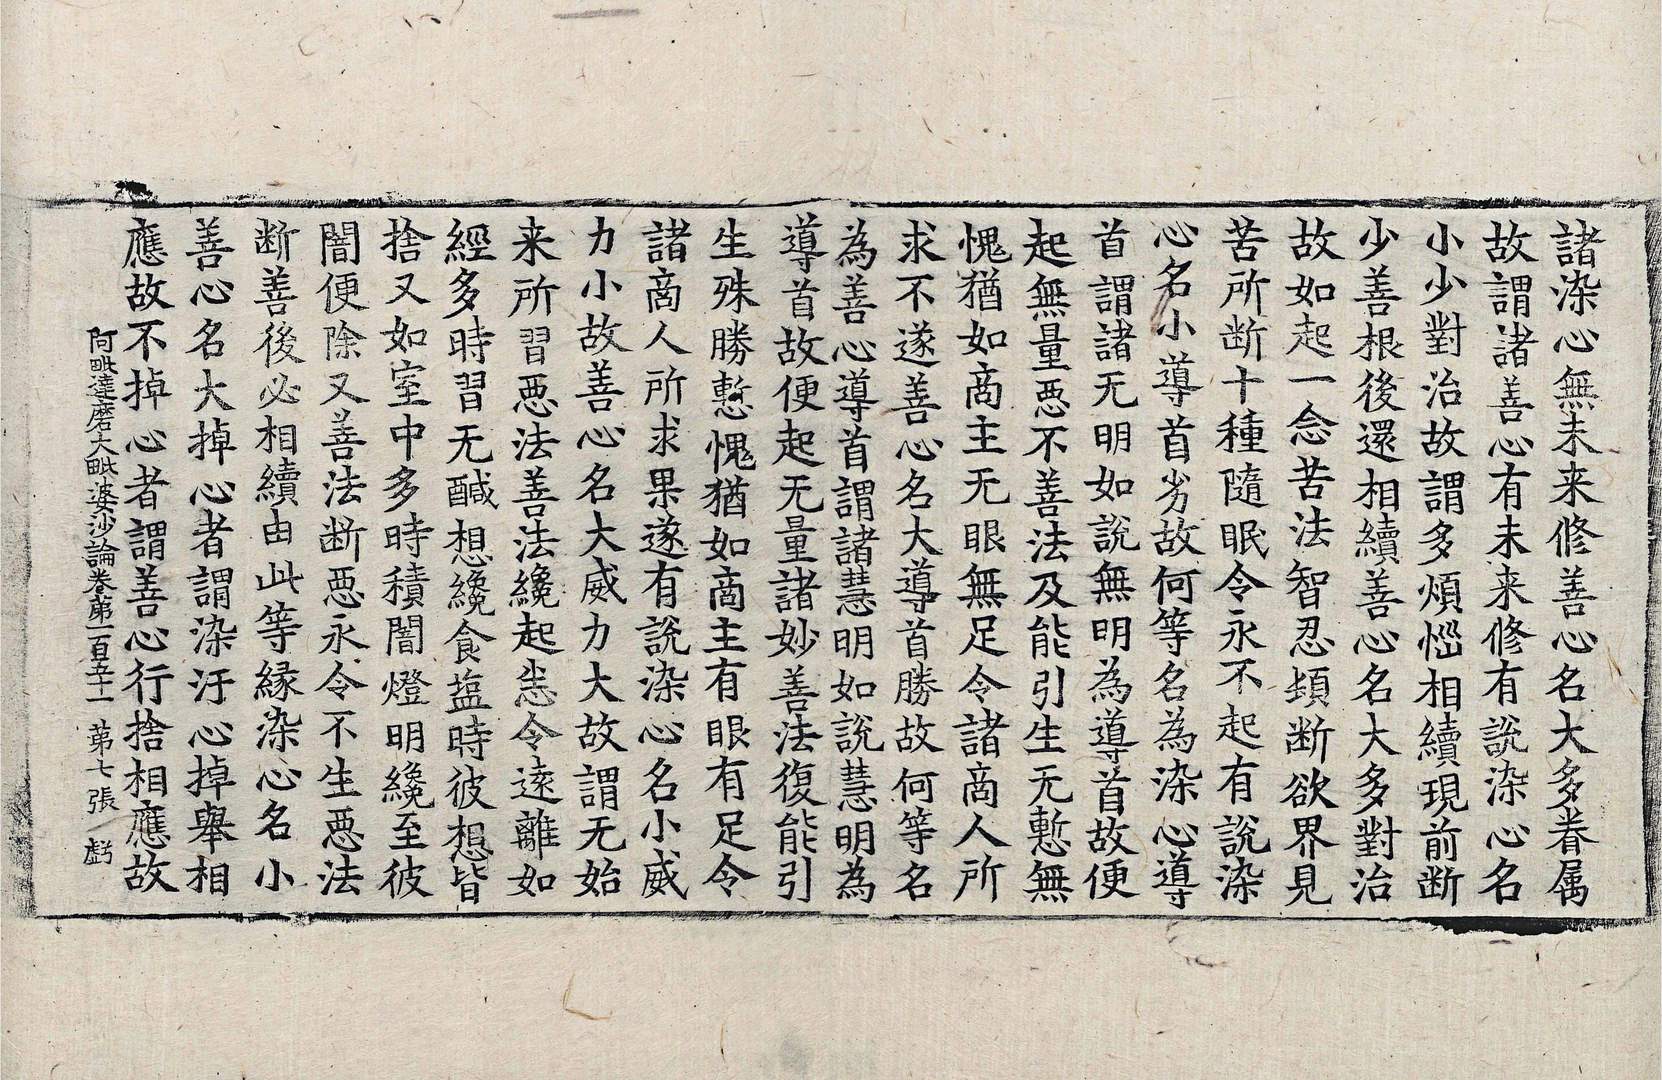 諸染心無未来修善心名大多眷属
故謂諸善心有未来修有說染心名
小少對治故謂多煩惱相續現前断
少善根後還相續善心名大多對治
故如起一念苦法智忍頓断欲界見
苦所断十種隨眠令永不起有說染
心名小導首劣故何等名為染心導
首謂諸无明如說無明為導首故便
起無量惡不善法及能引生无慙無
愧猶如商主无眼無足令諸商人所
求不遂善心名大導首勝故何等名
為善心導首謂諸慧明如說慧明為
導首故便起无量諸妙善法復能引
生殊勝慙愧猶如商主有眼有足令
諸商人所求果遂有說染心名小威
力小故善心名大威力大故謂无始
来所習惡法善法纔起悉令遠離如
經多時習无鹹想纔食塩時彼想皆
捨又如室中多時積闇燈明纔至彼
闇便除又善法断惡永令不生惡法
断善後必相續由此等緣染心名小
善心名大掉心者謂染汙心掉舉相
應故不掉心者謂善心行捨相應故
阿毗達磨大毗婆沙論卷第一百五十一 第七張 虧